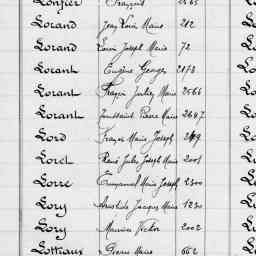 Lorand Jean Louis Marie 212
Lorand Louis Joseph Marie 72
Lorant Eugène Georges 2173
Lorant François Juluy Marie 2566
Lorant Toussaint Pierre Marie 2687
Lord François Marie Joseph 249
Loret René Jules Joseph Marie 2001
Lorre Emmanuel Marie Joseph 2300
Lory Aristide Jacques Marie 1230
Lory Maurice Victor 2002
Lottiaux Pierre Marie 662